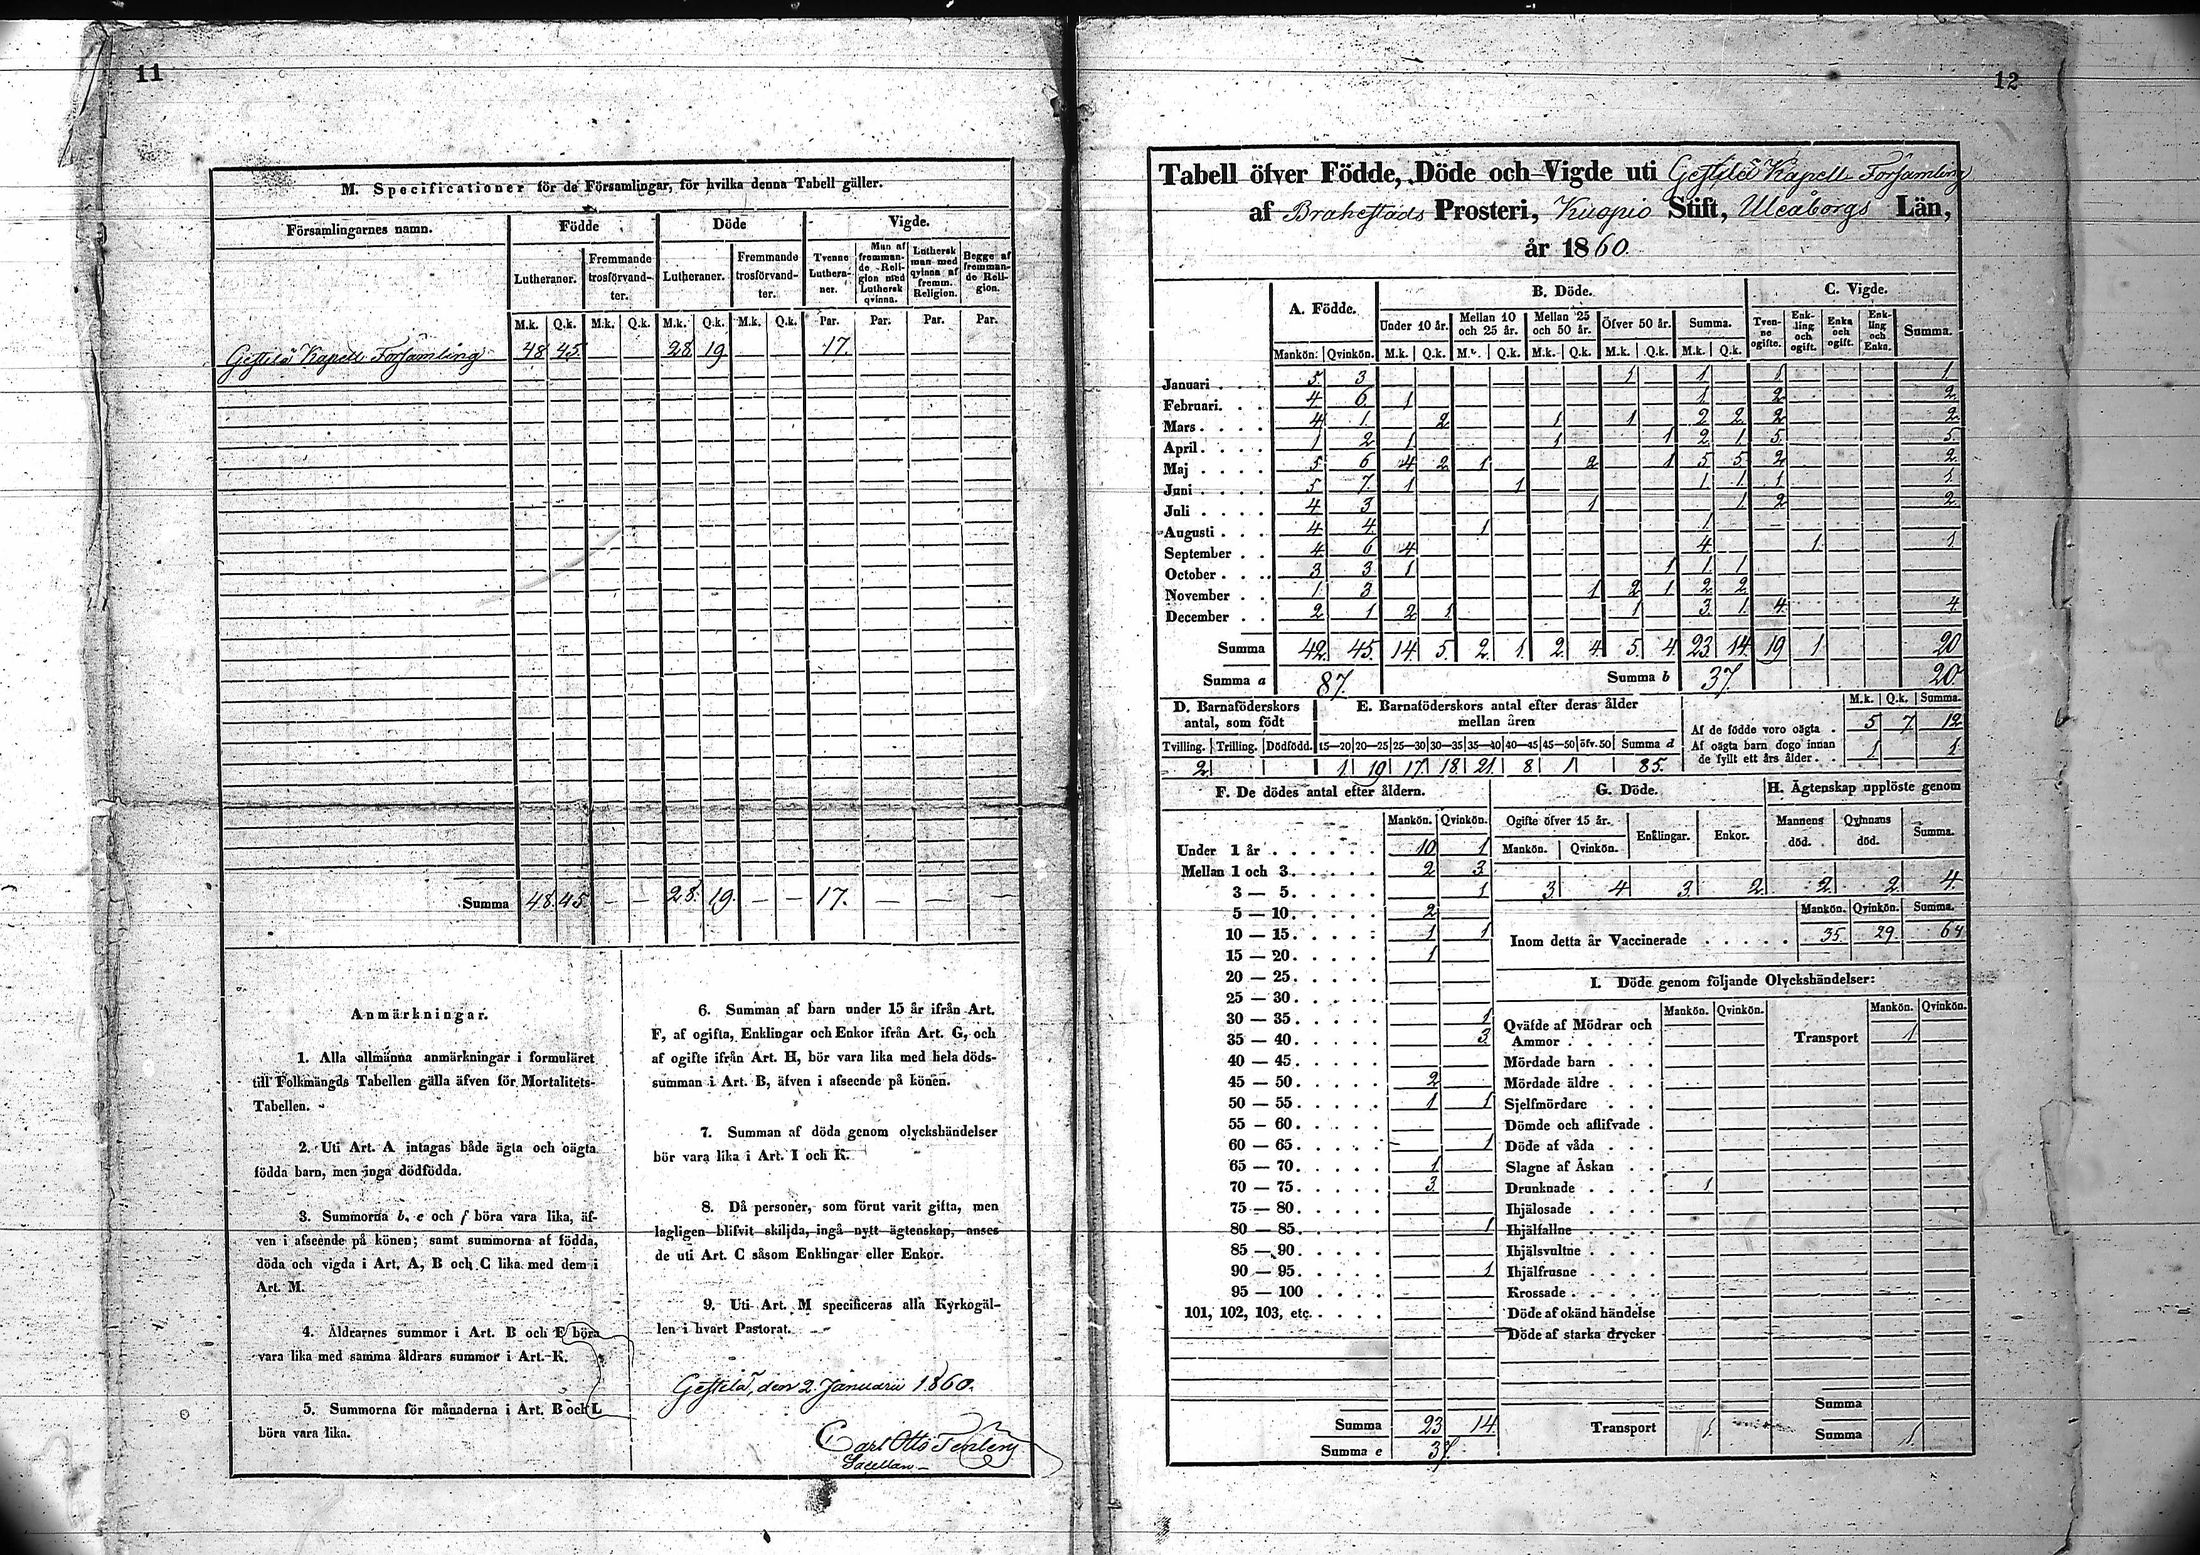 11
M. Specificationer för de Församlingar, för hvilka denna Tabell gäller.
Församlingarnes namn. Födde Döde Vigde.
Lutheraner. Fremmande trosförvandter. Lutheraner. Fremmande trosförvandter. Tvenne Lutheraner. Man af fremmande Religion med Luthersk qvinna. Luthersk man med qvinna af fremm. Religion. Begge af fremmande Religion.
M.k. Q.k. M.k. Q.k. M.k. Q.k. M.k. Q.k. Par. Par. Par. Par.
Gestilä Kapell Församling 48 45. 28 19 17.
Summa 48. 45. — — 28. 19. — — 17. — — —
Anmärkningar.
1. Alla allmänna anmärkningar i formuläret
till Folkmängds Tabellen gälla äfven för Mortalitets-
Tabellen.
2. Uti Art. A intagas både ägta och oägta
födda barn, men inga dödfödda.
3. Summorna b, e och f böra vara lika, äf-
ven i afseende på könen; samt summorna af födda,
döda och vigda i Art. A, B och C lika med dem i
Art. M.
4. Åldrarnes summor i Art. B och F böra
vara lika med samma åldrars summor i Art. K.
5. Summorna för månaderna i Art. B och L
böra vara lika.
6. Summan af barn under 15 år ifrån Art.
F, af ogifta, Enklingar och Enkor ifrån Art. G, och
af ogifte ifrån Art. H, bör vara lika med hela döds-
summan i Art. B, äfven i afseende på könen.
7. Summan af döda genom olyckshändelser
bör vara lika i Art. I och K.
8. Då personer, som förut varit gifta, men
lagligen blifvit skiljda, ingå nytt ägtenskap, anses
de uti Art. C såsom Enklingar eller Enkor.
9. Uti Art. M specificeras alla Kyrkogäl-
len i hvart Pastorat.
Gestilä, den 2 Januarii 1860.
Carl Otto
Sacellan
12
Tabell öfver Födde, Döde och Vigde uti Gestilä Kapell Församling
af Brahestads Prosteri, Kuopio Stift, Uleåborgs Län,
år 1860.
A. Födde. B. Döde. C. Vigde.
Under 10 år. Mellan 10 och 25 år. Mellan 25 och 50 år. Öfver 50 år. Summa. Tvenne ogifte. Enkling och ogift. Enka och ogift. Enkling och Enka. Summa.
Mankön. Qvinkön. M.k. Q.k. M.k. Q.k. M.k. Q.k. M.k. Q.k. M.k. Q.k.
Januari 5 3 1 1 1 1
Februari 4 6 1 1 2 2
Mars 4 1 2 1 1 2 2 2 2
April 1 2 1 1 1 2 1 5 5
Maj 5 6 4 2 1 2 1 5 5 2 2
Juni 5 7 1 1 1 1 1 1
Juli 4 3 1 1 2 2
Augusti 4 4 1 1
September 4 6 4 4 1 1
October 3 3 1 1 1 1
November 1 3 1 2 1 2 2
December 2 1 2 1 1 3 1 4 4
Summa 42 45 14 5 2 1 2 4 5 4 23 14 19 1 20
Summa a 87. Summa b 37. 20
D. Barnaföderskors antal, som födt
Tvilling. Trilling. Dödfödd.
2
E. Barnaföderskors antal efter deras ålder mellan åren
15—20 20—25 25—30 30—35 35—40 40—45 45—50 öfv. 50 Summa d
1 19 17 18 21 8 1 85.
M.k. Q.k. Summa.
Af de födde voro oägta 5 7 12
Af oägta barn dogo innan de fyllt ett års ålder 1 1
F. De dödes antal efter åldern.
Mankön. Qvinkön.
Under 1 år 10 1
Mellan 1 och 3 2 3
3 — 5 1
5 — 10 2
10 — 15 1 1
15 — 20 1
20 — 25
25 — 30
30 — 35 1
35 — 40 3
40 — 45
45 — 50 2
50 — 55 1 1
55 — 60
60 — 65 1
65 — 70 1
70 — 75 3
75 — 80
80 — 85 1
85 — 90
90 — 95 1
95 — 100
101, 102, 103, etc.
Summa 23 14
Summa e 37.
G. Döde.
Ogifte öfver 15 år. Enklingar. Enkor.
Mankön. Qvinkön.
3 4 3 2
H. Ägtenskap upplöste genom
Mannens död. Qvinnans död. Summa.
2 2 4
Mankön. Qvinkön. Summa.
Inom detta år Vaccinerade 35 29 64
I. Döde genom följande Olyckshändelser:
Mankön. Qvinkön. Mankön. Qvinkön.
Qväfde af Mödrar och Ammor Transport 1
Mördade barn
Mördade äldre
Sjelfmördare
Dömde och aflifvade
Döde af våda
Slagne af Åskan
Drunknade 1
Ihjälosade
Ihjälfallne
Ihjälsvultne
Ihjälfrusne
Krossade
Döde af okänd händelse
Döde af starka drycker
Summa
Transport 1 Summa 1